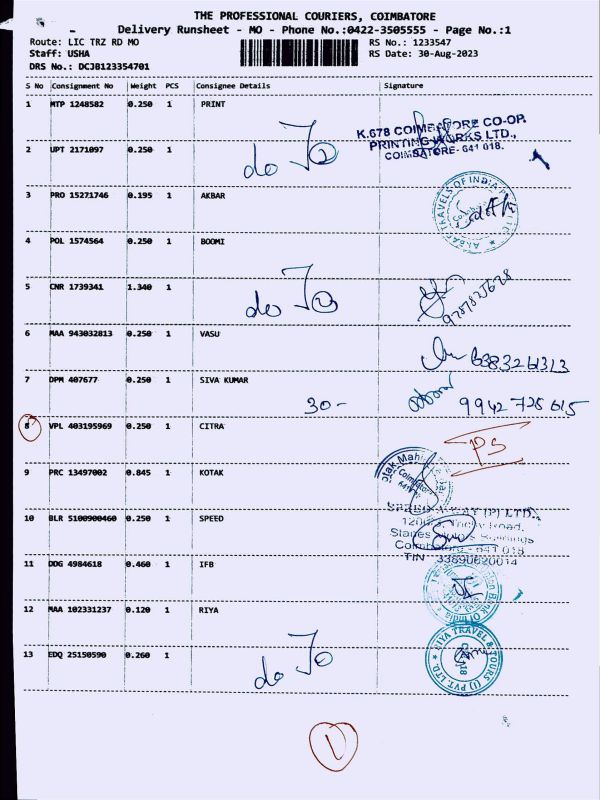 THE PROFESSIONAL COURIERS, COIMBATORE
Delivery Runsheet - MO - Phone No.:0422-3505555 - Page No.:1
Route: LIC TRZ RD MO RS No.: 1233547
Staff: USHA RS Date: 30-Aug-2023
DRS No.: DCJB123354701
S No Consignment No Weight PCS Consignee Details Signature
1 MTP 1248582 0.250 1 PRINT
K.678 COIMBATORE CO-OP.
PRINTING WORKS LTD.,
COIMBATORE- 641 018.
2 UPT 2171097 0.250 1
do
3 PRO 15271746 0.195 1 AKBAR
AKBAR TRAVELS OF INDIA
4 POL 1574564 0.250 1 BOOMI
5 CNR 1739341 1.340 1
do
6 MAA 943032813 0.250 1 VASU
6383261313
7 DPM 407677 0.250 1 SIVA KUMAR
30-
9942728615
8 VPL 403195969 0.250 1 CITRA
PS
9 PRC 13497002 0.845 1 KOTAK
10 BLR 5100900460 0.250 1 SPEED
(P) LTD.,
Road,
Stanes
Coimbatore - 641 018
TIN 33890620014
11 DDG 4984618 0.460 1 IFB
12 MAA 102331237 0.120 1 RIYA
RIYA TRAVEL & TOURS (I) PVT. LTD.
13 EDQ 25150590 0.260 1
do
1